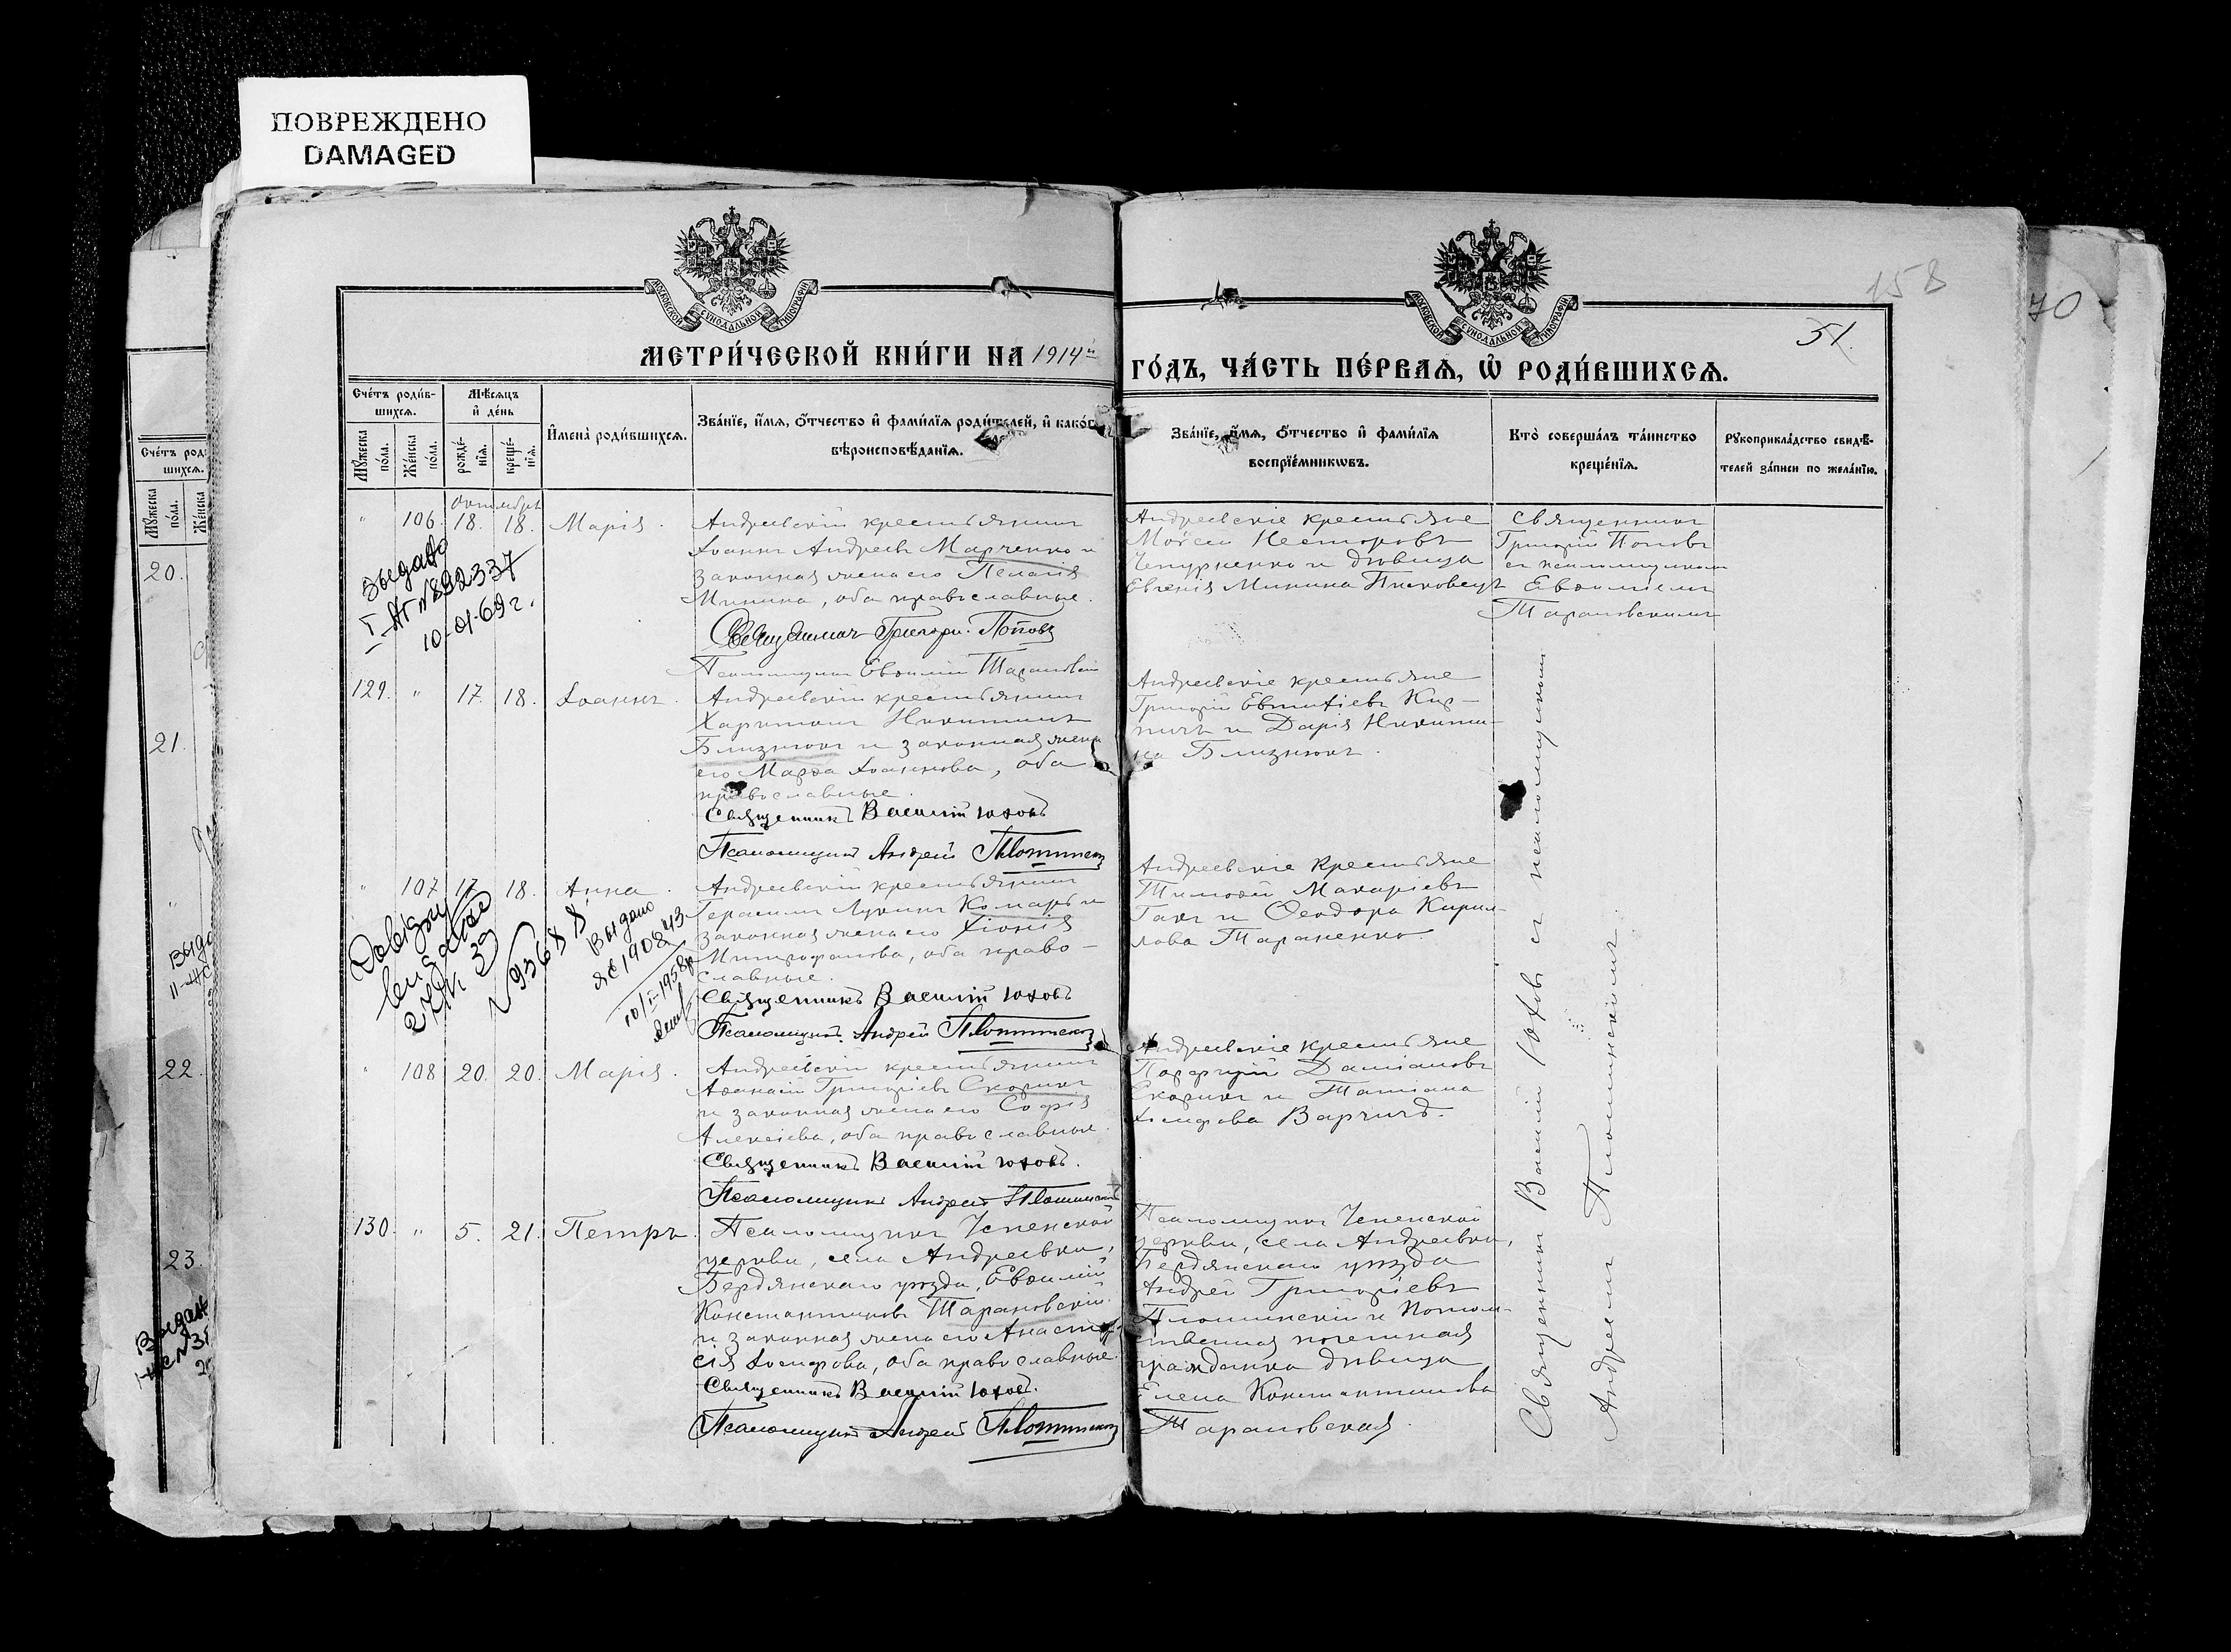 ПОВРЕЖДЕНО
DAMAGED
158
70
51.
МОСКОВСКОЙ СѴНОДАЛЬНОЙ ТИПОГРАФІИ
МОСКОВСКОЙ СѴНОДАЛЬНОЙ ТИПОГРАФІИ
МЕТРИ́ЧЕСКОЙ КНИ́ГИ НА 1914й
ГО́ДЪ, ЧА́СТЬ ПЕ́РВАѦ, Ѡ҆ РОДИ́ВШИХСѦ.
Сче́тъ роди́в-
шихсѧ.
Мꙋ́жеска
по́ла.
Же́нска
пола.
Мѣ́сѧцъ
и҆ де́нь
рожде́-
нїѧ.
креще́-
нїѧ.
И҆мена̀ роди́вшихсѧ.
Зва́нїе, и҆́мѧ, ѻ҆́тчество и҆ фами́лїѧ роди́телей, и҆ како́г
вѣроисповѣ́данїѧ.
Зва́нїе, и҆́мѧ, ѻ҆́тчество и҆ фами́лїѧ
воспрїе́мникѡвъ.
Кто̀ соверша́лъ та́инство
креще́нїѧ.
Рꙋкоприкла́дство свидѣ́-
телей за́писи по жела́нїю.
октября
" 106. 18. 18. Марія.
Андреевскій крестьянинъ
Іоаннъ Андреевъ Марченко и
законная жена его Пелагія
Минина, оба православные.
Священникъ Григорій Поповъ
Псаломщикъ Евѳимій Тарановскій
Андреевскіе крестьяне
Моѵсей Несторовъ
Чепурненко и дѣвица
Евгенія Минина Писковецъ
Священникъ
Григорій Поповъ
съ псаломщикомъ
Евѳиміемъ
Тарановскимъ
выдано
I-АГ №892337
10-01-69г.
129. " 17. 18. Іоаннъ.
Андреевскій крестьянинъ
Харитонъ Никитинъ
Близнюкъ и законная жена
его Марѳа Іоаннова, оба
православные.
Священникъ Василій Юховъ
Псаломщикъ Андрей Плотинскій
Андреевскіе крестьяне
Григорій Евтихіевъ Кир-
пичъ и Дарія Никити-
на Близнюкъ.
" 107 17 18. Анна.
Андреевскій крестьянинъ
Герасимъ Лукинъ Комаръ и
законная жена его Хіонія
Митрофанова, оба право-
славные.
Священникъ Василій Юховъ
Псаломщикъ Андрей Плотинскій
Андреевскіе крестьяне
Тимоѳей Макаріевъ
Гакъ и Ѳеодора Кирил-
лова Тараненко.
Выдано
10/I-1958р
" 108 20. 20. Марія.
Андреевскій крестьянинъ
Аѳанасій Григоріевъ Скорикъ
и законная жена его Софія
Алексіева, оба православные.
Священникъ Василій Юховъ.
Псаломщикъ Андрей Плотинскій
Андреевскіе крестьяне
Порфирій Даміановъ
Скорикъ и Татіана
Іосифова Варчичъ.
130. " 5. 21. Петръ.
Псаломщикъ Успенской
церкви, села Андреевки,
Бердянскаго уѣзда, Евѳимій
Константиновъ Тарановскій
и законная жена его Анаста-
сія Іосифова, оба православные.
Священникъ Василій Юховъ.
Псаломщикъ Андрей Плотинскій
Псаломщикъ Успенской
церкви, села Андреевки,
Бердянскаго уѣзда
Андрей Григоріевъ
Плотинскій и потом-
ственная почетная
гражданка дѣвица
Елена Константинова
Тарановская.
Священникъ Василій Юховъ съ псаломщикомъ
Андреемъ Плотинскимъ.
Сче́тъ род
шихсѧ.
Мꙋ́жеска
по́ла.
Же́нска
20.
21.
22.
23.